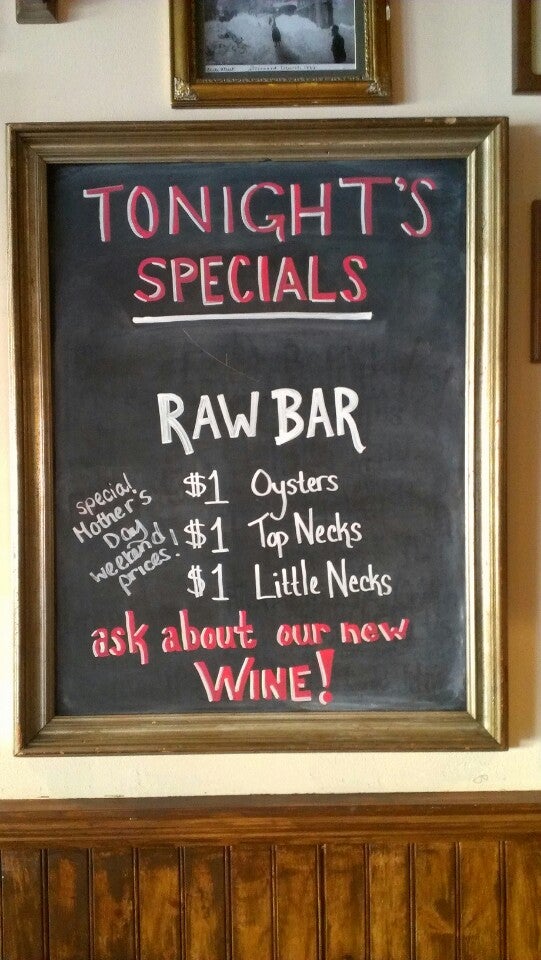 TONIGHT'S
SPECIALS
RAW BAR
$1 Oysters
$1 Top Necks
$1 Little Necks
special
Mother's
Day
weekend
prices!
ask about our new
WINE!